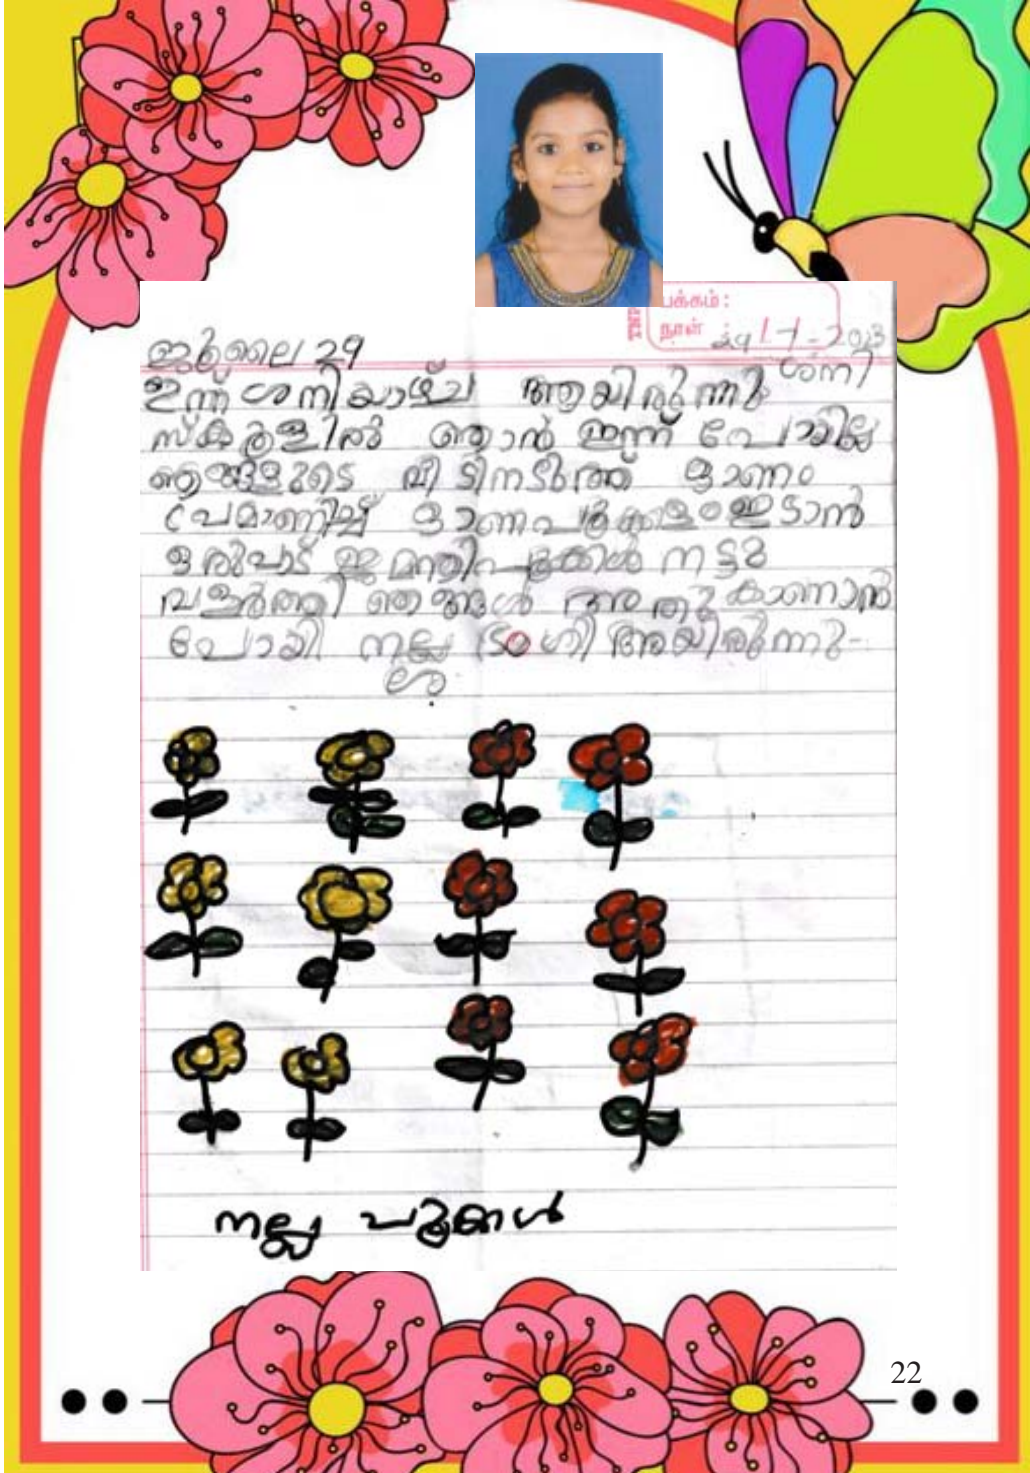 பக்கம் :
நாள்
29/7-2023
ശനി
ജൂലൈ 29
ഇന്ന് ശനിയാഴ്ച ആയിരുന്നു
സ്കൂളിൽ ഞാൻ ഇന്ന് പോയില്ല
ഞങ്ങളുടെ വീടിനടുത്ത് ഓണം
ഓണപൂക്കളംഇടാൻ
ഒരുപാട് പൂക്കൾ നട്ടു
വളർത്തി ഞങ്ങൾ അതു കാണാൻ
പോയി നല്ല ഭംഗി അയിരുന്നു-
നല്ല പൂക്കൾ
22